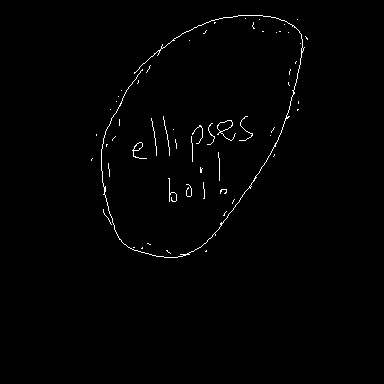 ellipses
boi!